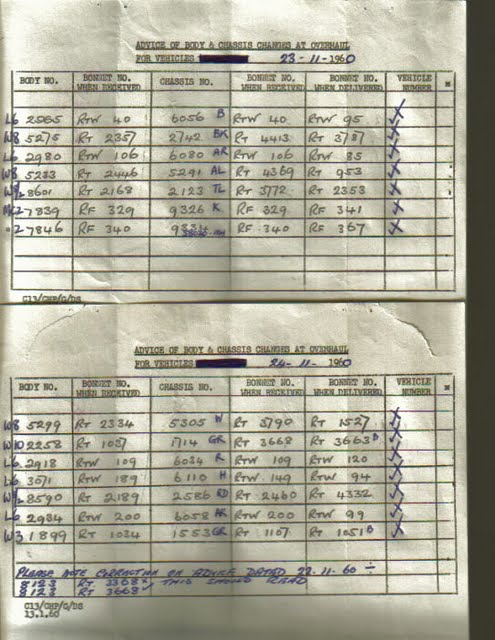 ADVICE OF BODY & CHASSIS CHANGES AT OVERHAUL
FOR VEHICLES 23-11-1960
BODY NO. BONNET NO. WHEN RECEIVED CHASSIS NO. BONNET NO. WHEN RECEIVED BONNET NO. WHEN DELIVERED VEHICLE NUMBER
L6 2565 RTW 40 6056 B RTW 40 RTW 95 X
W8 5275 RT 2357 2742 BK RT 4413 RT 3787 X
L6 2980 RTW 106 6080 AR RTW 106 RTW 85 X
W8 5233 RT 2446 5291 AL RT 4369 RT 953 X
8601 RT 2168 2123 TL RT 3772 RT 2353 X
7839 RF 329 9326 K RF 329 RF 341 X
7846 RF 340 RF 340 RF 367 X
C13/CHP/G/DS
ADVICE OF BODY & CHASSIS CHANGES AT OVERHAUL
FOR VEHICLES 24-11-1960
BODY NO. BONNET NO. WHEN RECEIVED CHASSIS NO. BONNET NO. WHEN RECEIVED BONNET NO. WHEN DELIVERED VEHICLE NUMBER
W8 5299 RT 2334 5305 W RT 3790 RT 1527 X
W10 2258 RT 1037 1714 GR RT 3668 RT 3663 B X
L6 2918 RTW 109 6034 R RTW 109 RTW 120 X
L6 3071 RTW 189 6110 H RTW 149 RTW 94 X
8590 RT 2189 2586 RD RT 2460 RT 4332 X
L6 2934 RTW 200 6058 AR RTW 200 RTW 99 X
W3 1899 RT 1034 1553 GR RT 1107 RT 1051 B X
PLEASE NOTE CORRECTION ON ADVICE DATED 22-11-60 ÷
8123 RT 3368 X THIS SHOULD READ
8123 RT 3668 ✓
C13/CHP/G/DS
13.1.60